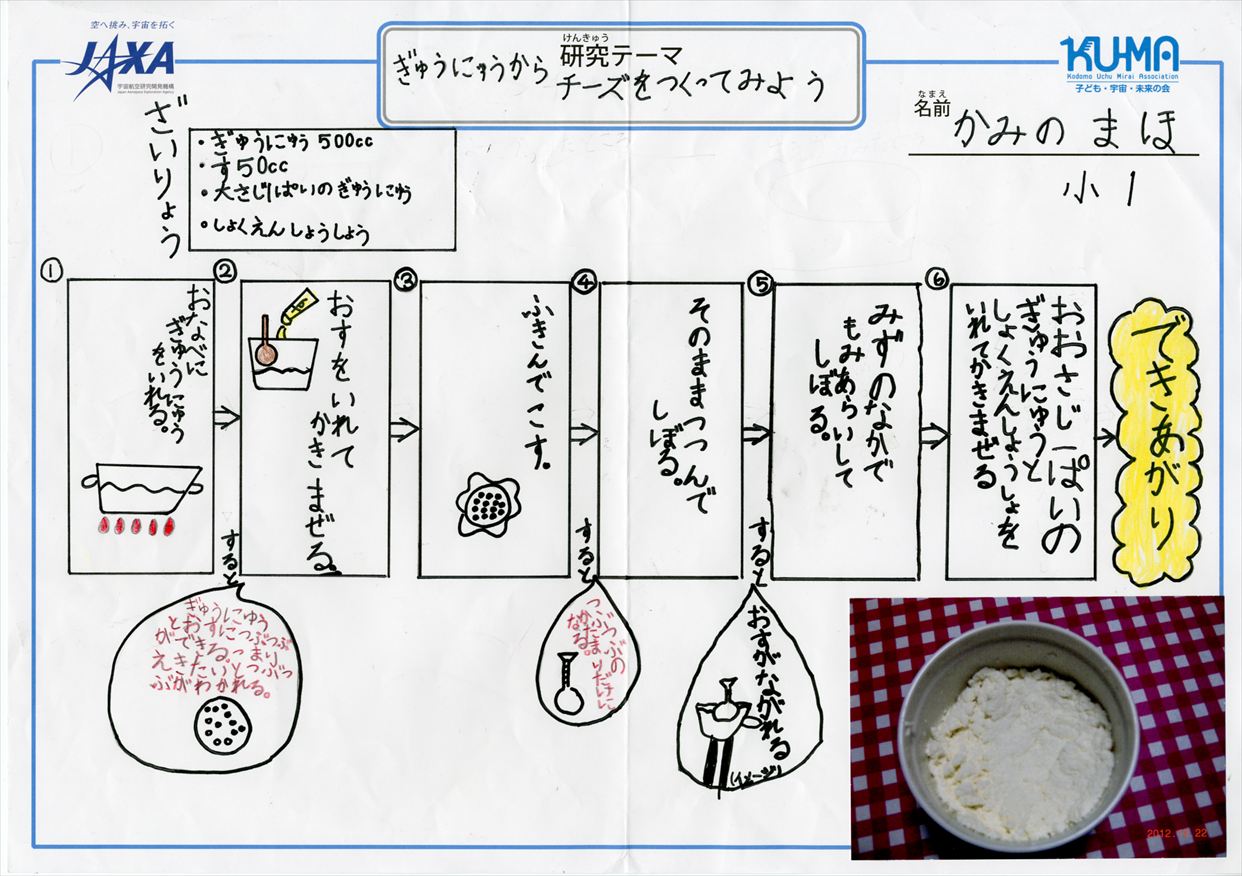 空へ挑み、宇宙を拓く
JAXA
宇宙航空研究開発機構
Japan Aerospace Exploration Agency
けんきゅう
研究テーマ
ぎゅうにゅうから
チーズをつくってみよう
KU-MA
Kodomo Uchu Mirai Association
子ども・宇宙・未来の会
なまえ
名前
かみの まほ
小1
ざいりょう
・ぎゅうにゅう 500cc
・す50cc
・大さじ1ぱいのぎゅうにゅう
・しょくえんしょうしょう
①
おなべに
ぎゅうにゅう
をいれる。
②
おすをいれて
かきまぜる。
すると
ぎゅうにゅう
とおすにつぶつぶ
ができる。つまり
えきたいとつぶつ
ぶがわかれる。
③
ふきんでこす。
④
そのままつつんで
しぼる。
すると
つぶつぶの
かたまりだけに
なる。
⑤
みずのなかで
もみあらいして
しぼる。
すると
おすがながれる
(イメージ)
⑥
おおさじ一ぱいの
ぎゅうにゅうと
しょくえんしょうしょを
いれてかきまぜる
できあがり